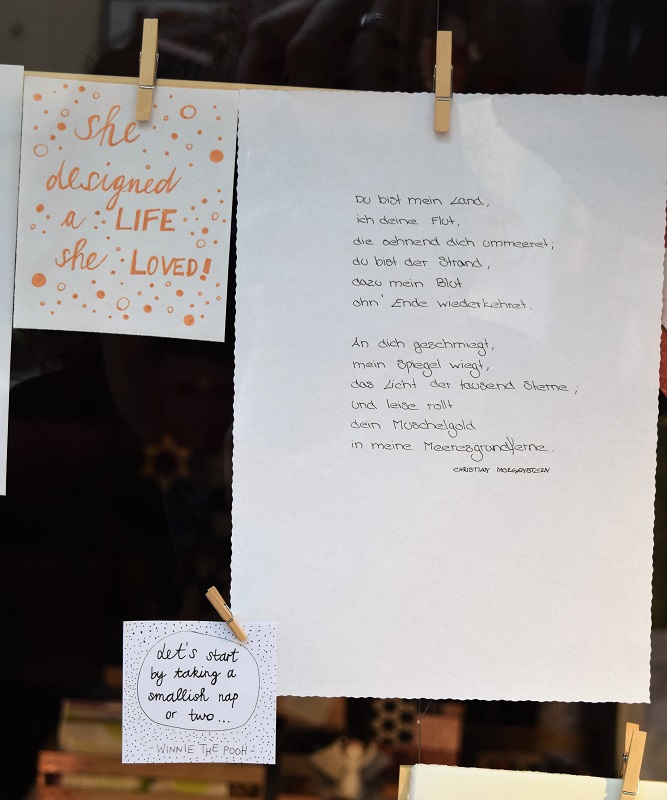 she
designed
a LIFE
she LOVED!
Du bist mein Land,
ich deine Flut,
die sehnend dich ummeeret;
du bist der Strand,
dazu mein Blut
ohn' Ende wiederkehret.
An dich geschmiegt,
mein Spiegel wiegt,
das Licht der tausend Sterne;
und leise rollt
dein Muschelgold
in meine Meeresgrundferne.
CHRISTIAN MORGENSTERN
Let's start
by taking a
smallish nap
or two...
WINNIE THE POOH -